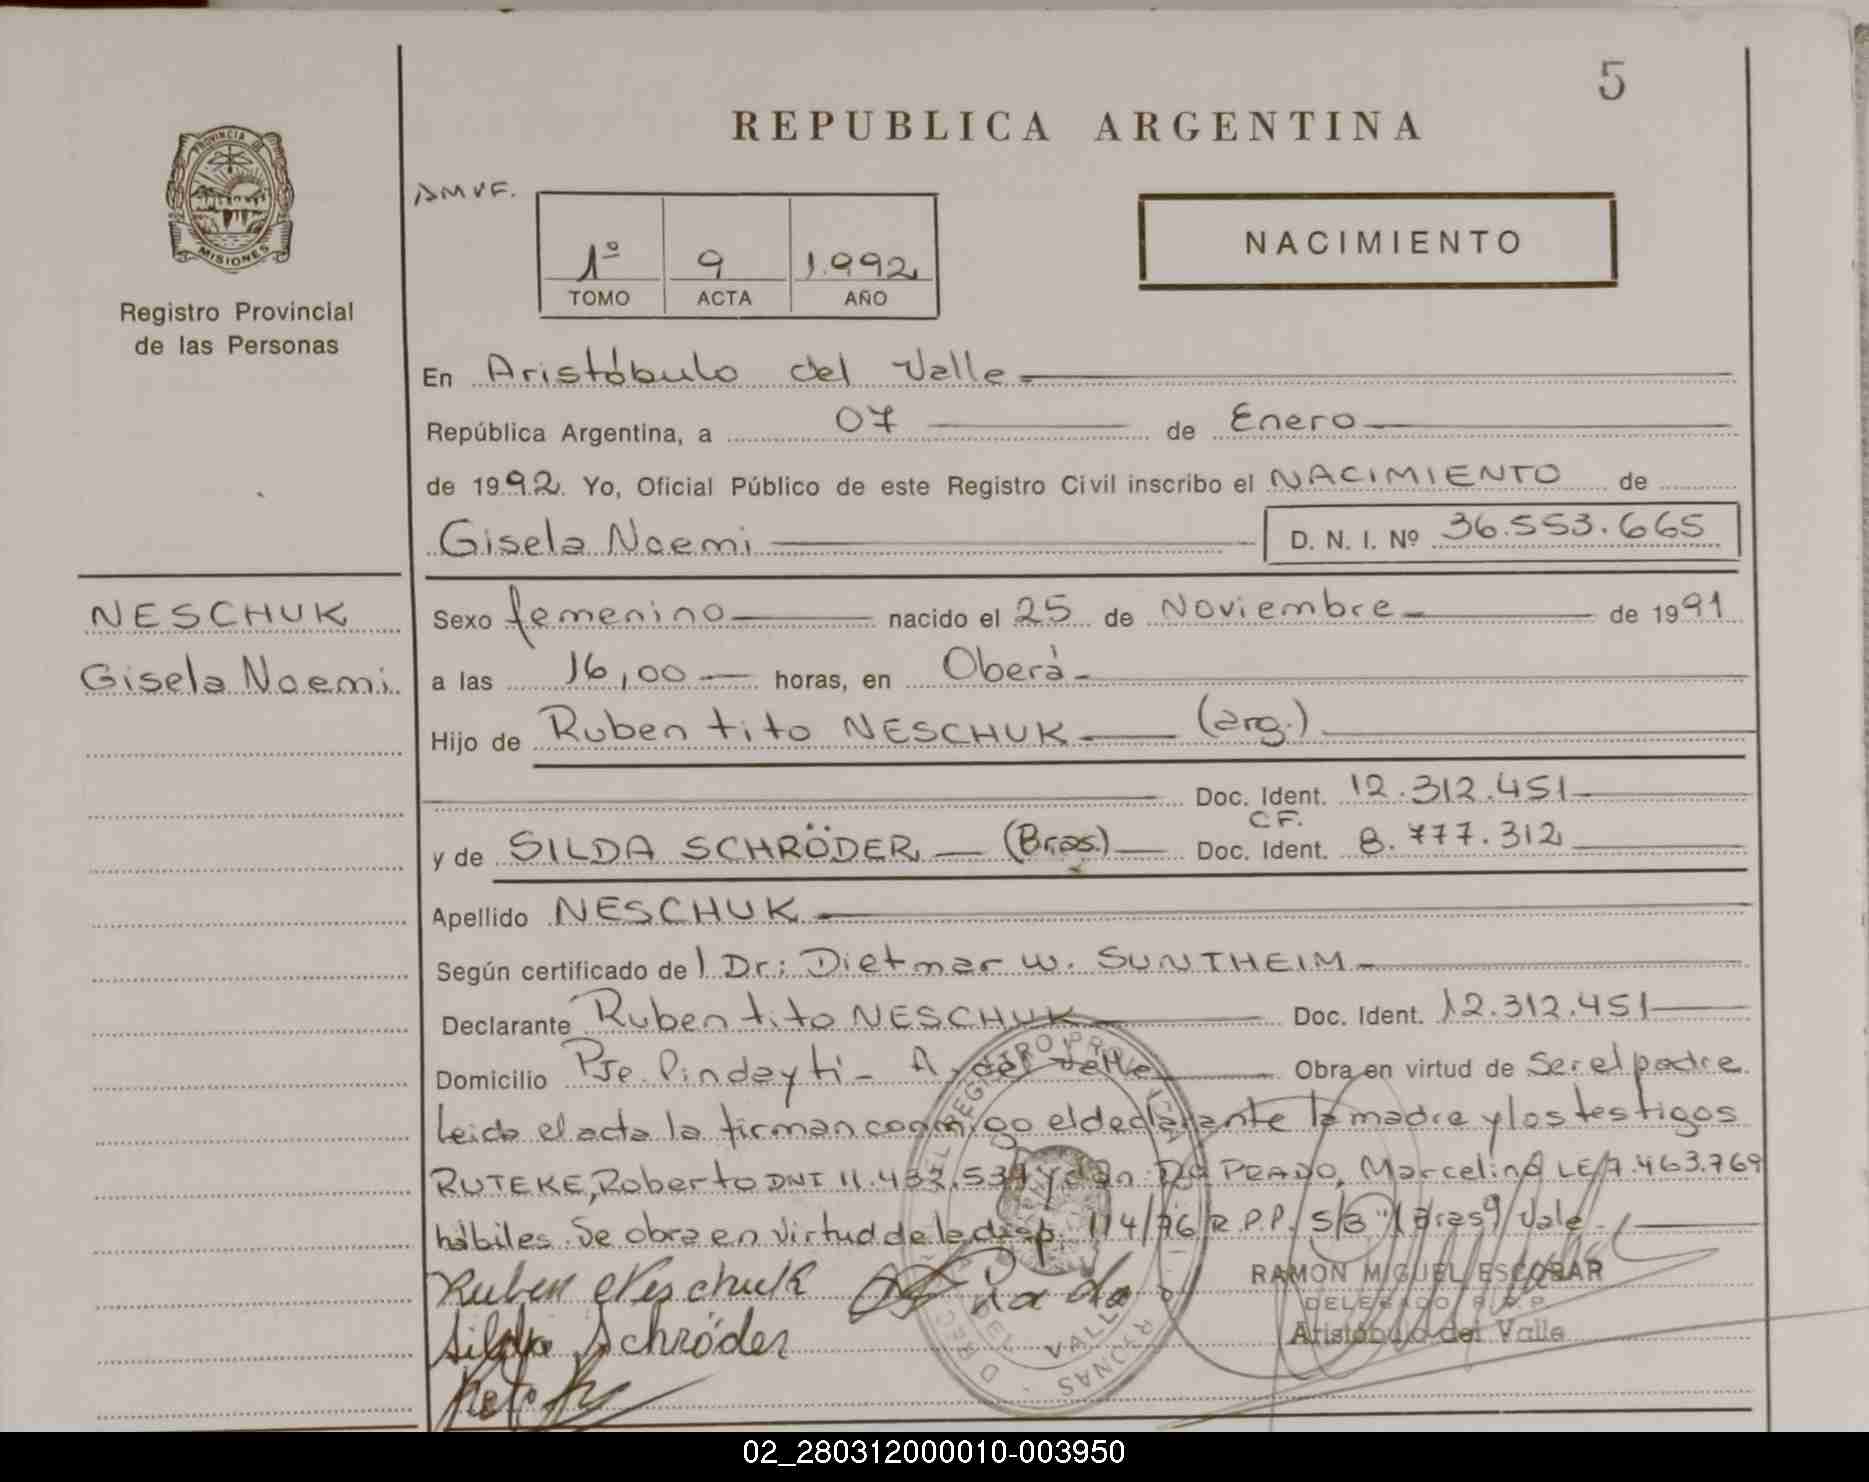 5
REPUBLICA ARGENTINA
PROVINCIA DE
MISIONES
Registro Provincial
de las Personas
AMVF.
1º 9 1.992
TOMO ACTA AÑO
NACIMIENTO
En Aristóbulo del Valle
República Argentina, a 07 de Enero
de 1992. Yo, Oficial Público de este Registro Civil inscribo el NACIMIENTO de
Gisela Noemi D. N. I. Nº 36.553.665
NESCHUK
Gisela Noemi
Sexo femenino nacido el 25 de Noviembre de 1991
a las 16,00 horas, en Oberá
Hijo de Ruben tito NESCHUK (arg.)
Doc. Ident. 12.312.451
CF.
y de SILDA SCHRÖDER (Bras.) Doc. Ident. 8.777.312
Apellido NESCHUK
Según certificado de l Dr: Dietmar W. SUNTHEIM
Declarante Ruben tito NESCHUK Doc. Ident. 12.312.451
Domicilio Pje. Pindayti - A. del Valle Obra en virtud de Ser el padre
Leida el acta la firman conmigo el declarante la madre y los testigos
RUTEKE, Roberto DNI 11.432.534 y don Da PRADO, Marcelino LE 7.463.769
hábiles. Se obra en virtud de la disp. 114/76 R.P.P. S/B "(Bras)" Vale.
Ruben Neschuk
Silda Schröder
RAMON MIGUEL ESCOBAR
DELEGADO R.P.P.
Aristóbulo del Valle
02_280312000010-003950